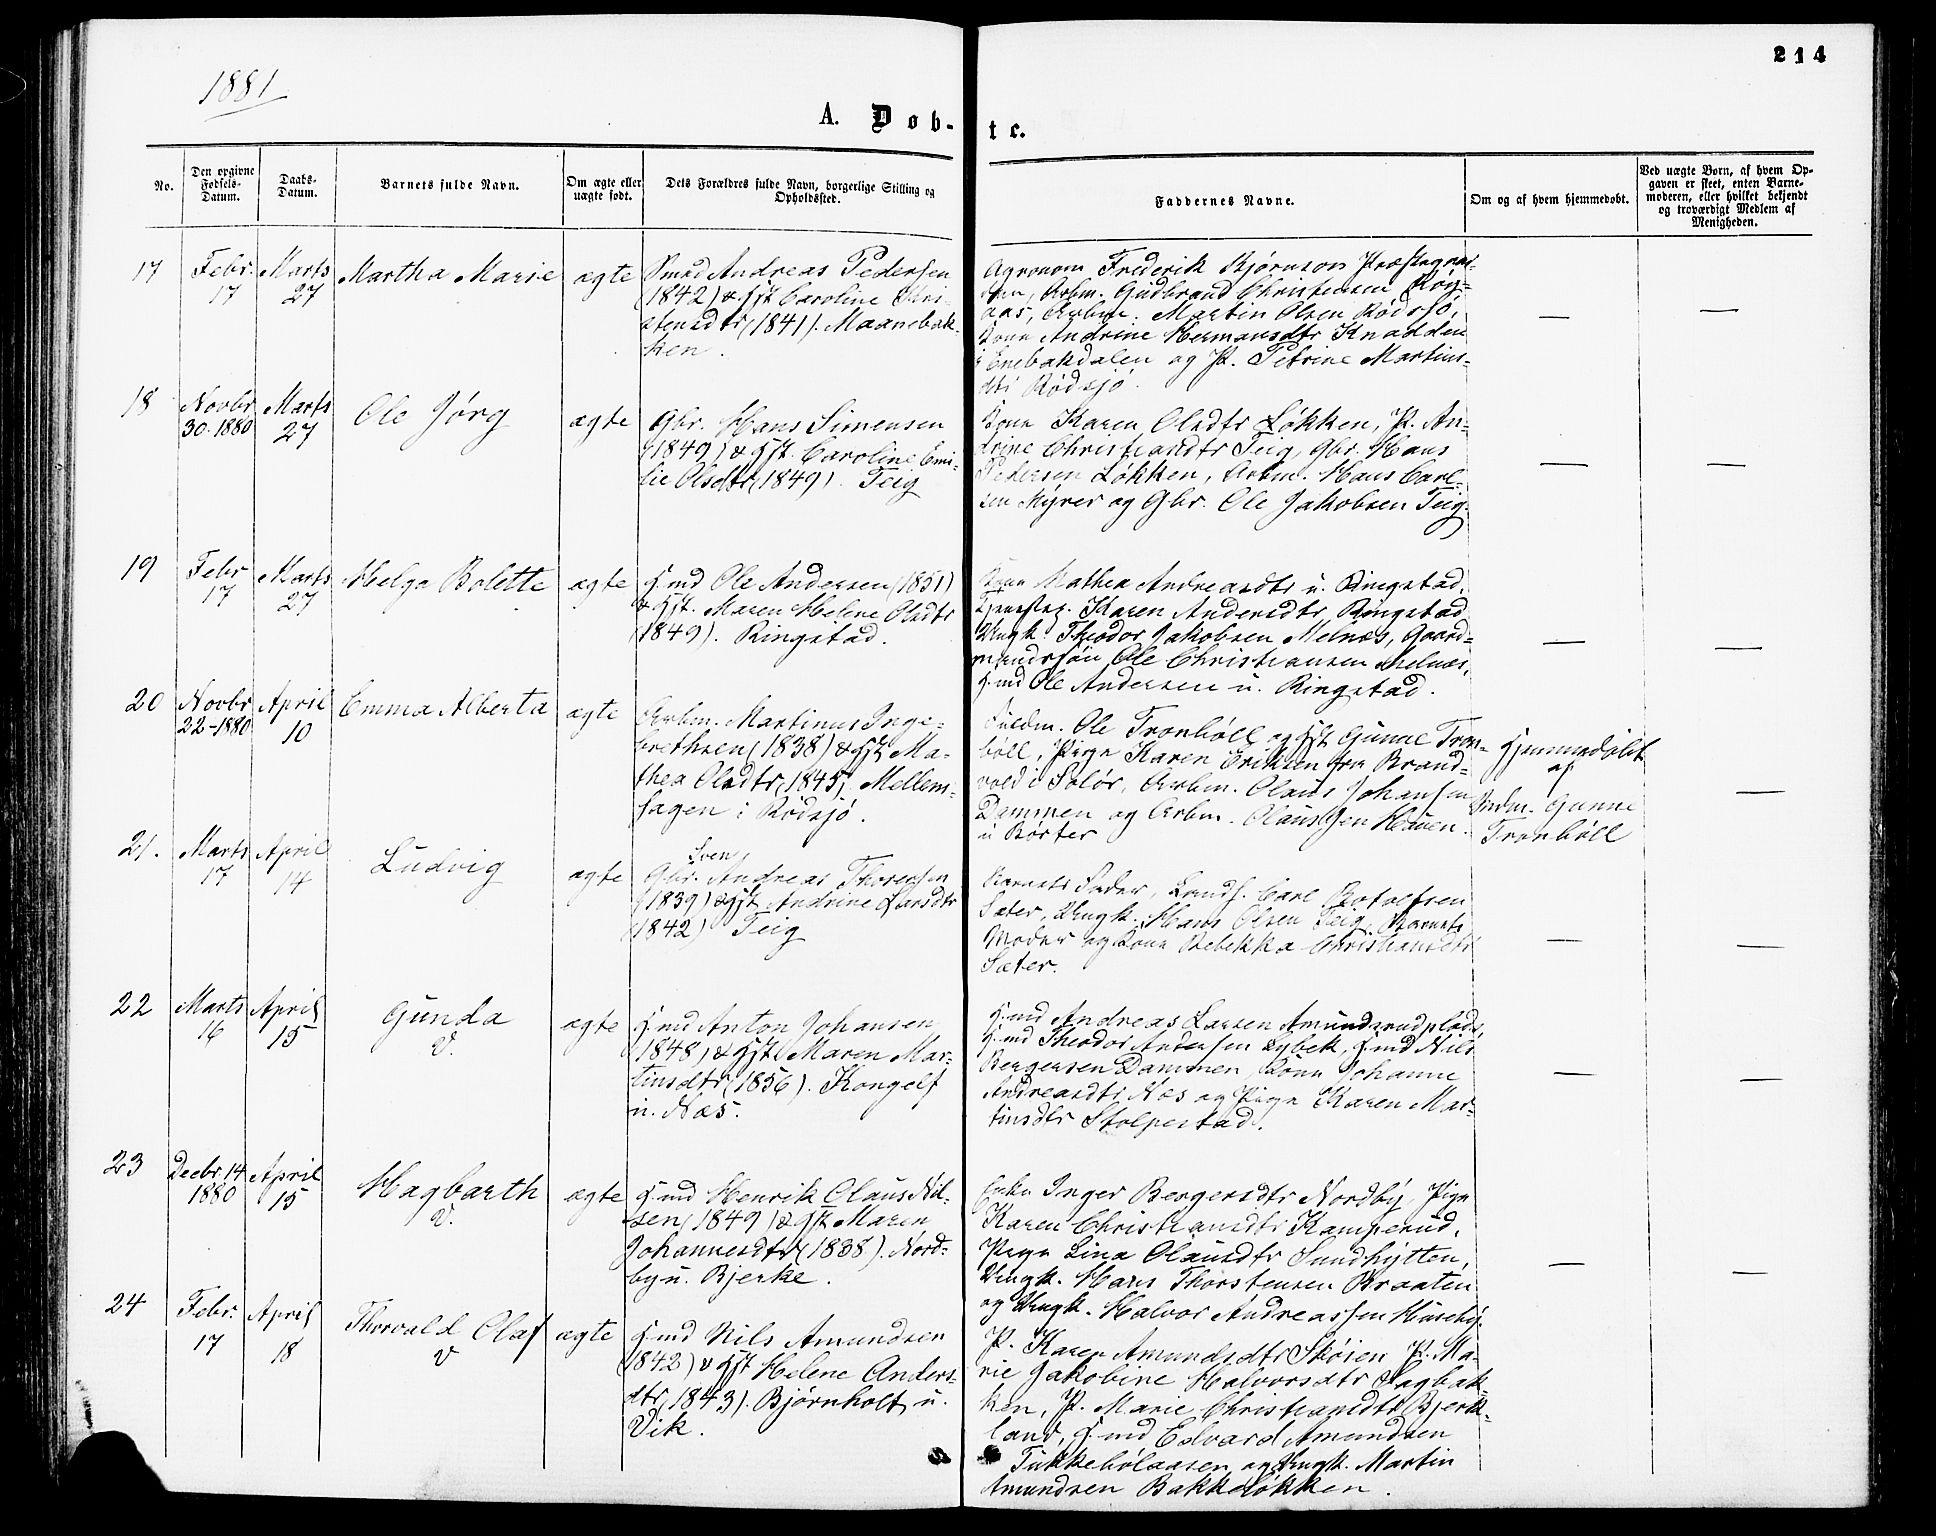 214
1881
A. Døb-
te.
No.
Den opgivne
Fødsels-
Datum.
Daabs-
Datum.
Barnets fulde Navn.
Om ægte eller
uægte født.
Dets Forældres fulde Navn, borgerlige Stilling og
Opholdssted.
Faddernes Navne.
Om og af hvem hjemmedøbt.
Ved uægte Børn, af hvem Op-
gaven er skeet, enten Barne-
moderen, eller hvilket bekjendt
og troværdigt Medlem af
Menigheden.
17
Febr.
17
Marts
27
Martha Marie
ægte
Smed Andreas Pedersen
(1842) & Hst. Caroline Kri-
stensdtr (1841). Maanebak-
ken.
Agronom Frederik Bjørnson Præstegaar-
den, Arbm. Gudbrand Christensen Røn-
aas, Arbm. Martin Olsen Rødsjø,
Kone Andrine Hermansdtr Knadden
i Enebakdalen og P. Petrine Martins-
dtr Rødsjø.
—
—
18
Novbr
30-1880
Marts
27
Ole Jørg
ægte
Gbr. Hans Simensen
(1849) & Hst. Caroline Emi-
lie Olsdtr (1849). Teig
Kone Karen Olsdtr Løkken, P. An-
drine Christiansdtr Teig, Gbr. Hans
Pedersen Løkken, Arbm. Hans Carl-
sen Myrer og Gbr. Ole Jakobsen Teig.
—
—
19
Febr
17
Marts
27
Helga Bolette
ægte
H.md Ole Andersen (1851)
& Hst. Maren Helene Olsdtr
(1849). Ringstad.
Kone Mathea Andreasdtr u. Ringstad,
Tjenestep. Karen Andersdtr Ringstad
Ungk. Theodor Jakobsen Melnæs, Gaard-
mandssøn Ole Christiansen Melnæs,
H.md Ole Andersen u. Ringstad.
—
—
20
Novbr
22-1880
April
10
Emma Alberta
ægte
Arbm. Martinus Inge-
brethsen (1838) & Hst. Ma-
thea Olsdtr (1845). Mellem-
sagen i Rødsjø.
Ole Tronbøll og Hst. Gunne Tron-
bøll, Pige Karen Eriksen fra Brand-
vold i Solør, Arbm. Olaus Johansen
Dammen og Arbm. Olaus Jensen
u Børter
Hjemmedøbt
af
Gunne
Tronbøll
—
21.
Marts
17
April
14
Ludvig
ægte
Sven
Gbr. Andreas Thoresen
(1839) & Hst Andrine Larsdtr
(1842) Teig
Barnets Fader, Landh. Carl Rotolfsen
Sæter, Ungk. Hans Olsen Teig, Barnets
Moder og Kone Rebekka Christiansdtr
Sæter.
—
—
22
Marts
16
April
15
Gunda
V.
ægte
H.md Anton Johansen
(1848) & Hst Maren Mar-
tinsdtr (1856). Kongelf
u. Næs.
H.md Andreas Larsen Amundrudplads,
H.md Theodor Andersen Lybek, H.md Nils
Bergersen Dammen, Kone Johanne
Andreasdtr Næs og Pige Karen Mar-
tinsdtr Stolpestad.
—
—
23
Decbr. 14
1880
April
15
Hagbarth
V.
ægte
H.md Henrik Olaus Nil-
sen (1849) & Hst Maren
Johannesdtr (1838). Nord-
by u. Bjerke.
Enke Inger Bergersdtr Nordby, Pige
Karen Christiansdtr Kamperud,
Pige Lina Olausdtr Sundhytten,
Ungk. Hans Thorstensen Braaten
og Ungk. Halvor Andreassen Huseby.
—
—
24
Febr.
17
April
18
Thorvald Olaf
V
ægte
H.md Nils Amundsen
(1842) & Hst Helene Anders-
dtr (1843). Bjørnholt u.
Vik.
P. Karen Amundsdtr Skøien P. Ma-
rie Jakobine Halvorsdtr Fagbak-
ken, P. Marie Christiansdtr Bjerk-
land, H.md Edvard Amundsen
Tukkebølaasen og Ungk. Martin
Amundsen Bakkeløkken.